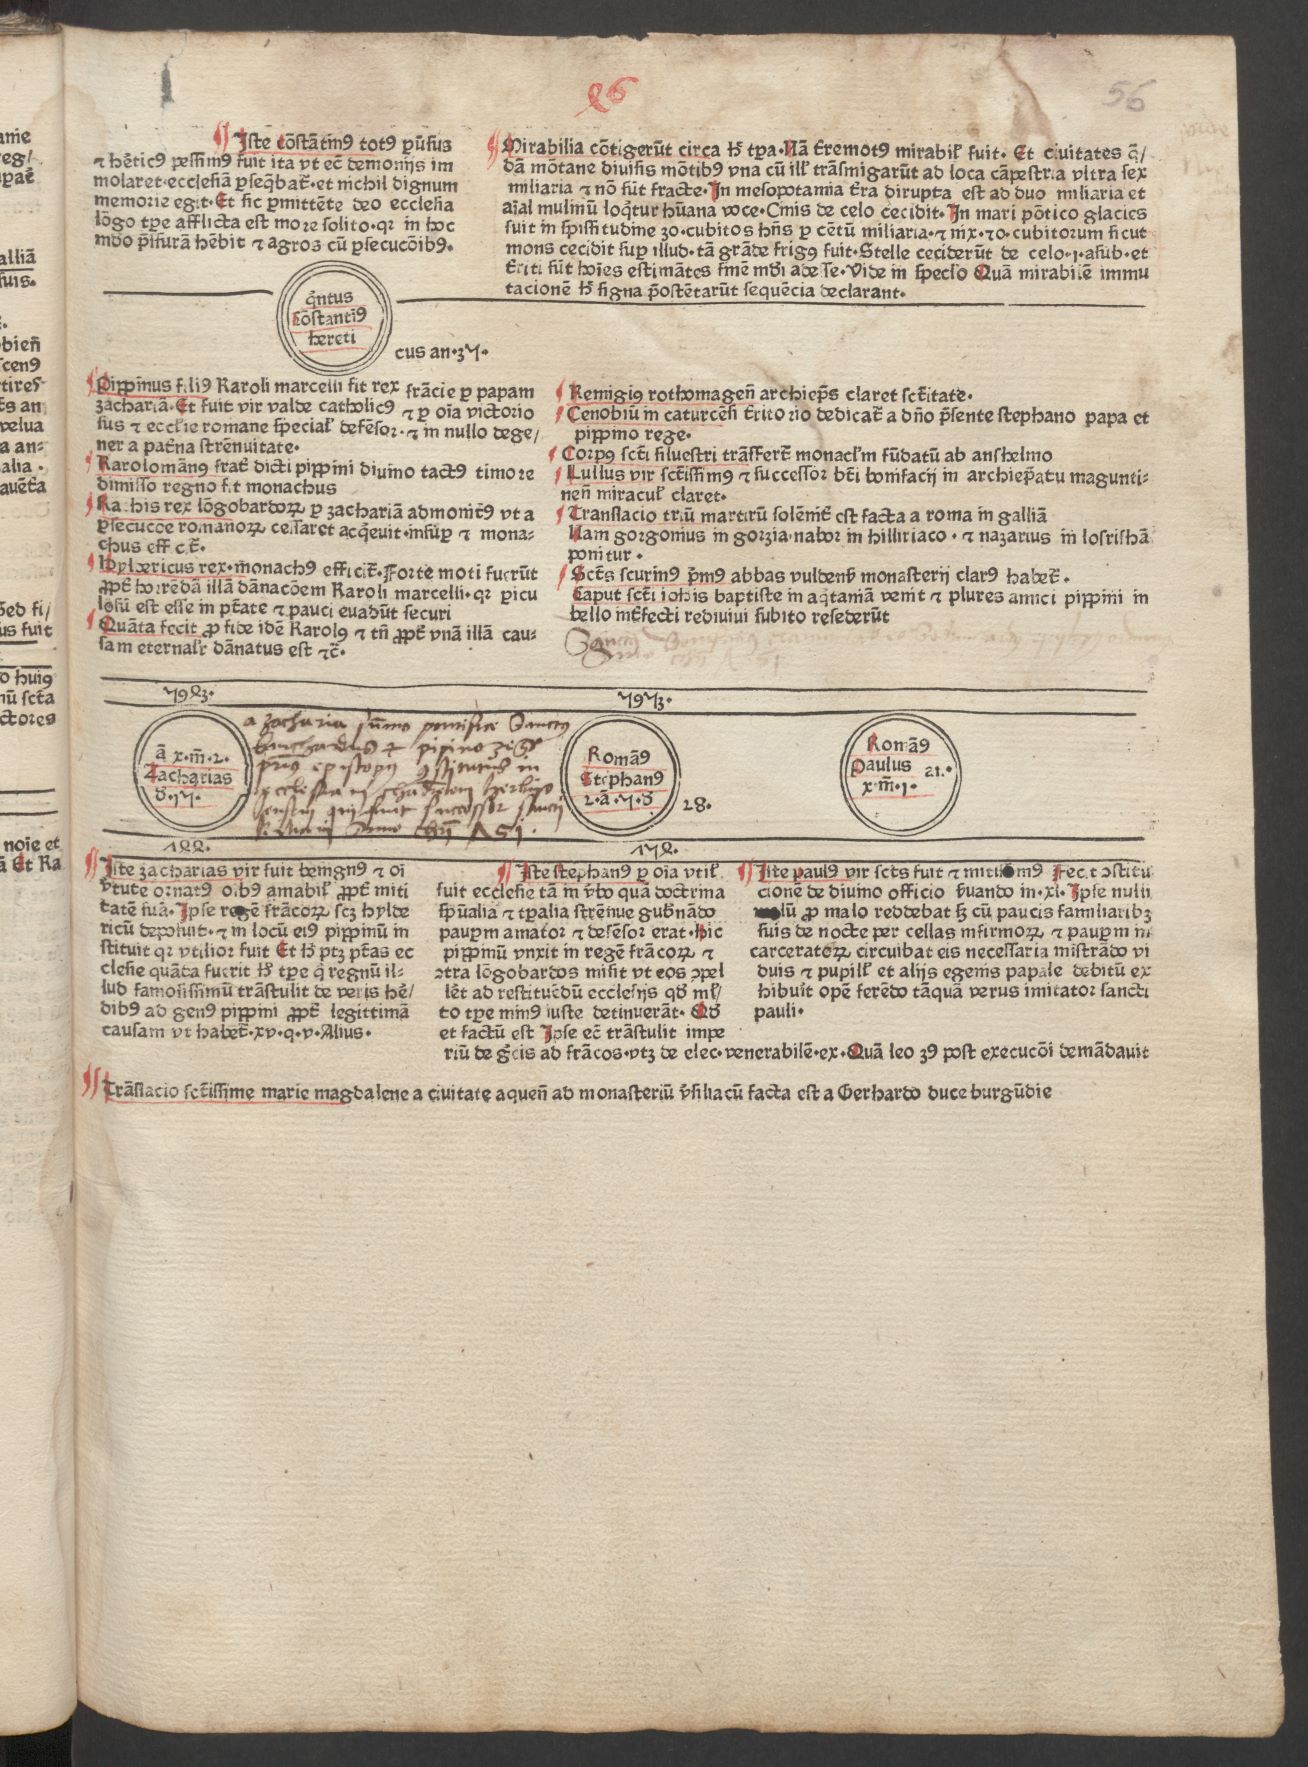 56
56
Iste cōstātinꝰ totꝰ ꝑūsus
⁊ hēticꝰ pessimꝰ fuit ita vt ec̄ demonijs im
molaret·ecclesiā ꝑseq̄bat̄·et nichil dignum
memorie egit·Et sic ꝑmittēte deo ecclesia
lōgo tꝑe afflicta est more solito·qr in hoc
mūdo p̄ssurā hēbit ⁊ agros cū ꝑsecucōibꝰ·
Mirabilia cōtigerūt circa hͦ tꝑa·Nā t̄remotꝰ mirabil̄ fuit· Et ciuitates q̄/
dā mōtane diuisis mōtibꝰ vna cū ill̄ trāsmigarūt ad loca cāpestria vltra sex
miliaria ⁊ nō sūt fracte·In mesopotamia t̄ra dirupta est ad duo miliaria et
aīal mulinū loq̄tur hūana voce·Cinis de celo cecidit·In mari pōtico glacies
fuit in spissitudine 30·cubitos hn̄s ꝑ cētū miliaria·⁊ nix·20·cubitorum sicut
mons cecidit suꝑ illud·tā grāde frigꝰ fuit·Stelle cecider̄ūt de celo·i·asub·et
t̄riti sūt hoīes estimātes finē mūdi adesse·Vide in spec̄lo Quā mirabilē immu
tacionē hͦ signa p̄ostētarūt sequēcia declarant·
q̄ntus
cōstantīꝰ
hereti
cus an·37·
Pippinus filiꝰ Karoli marcelli fit rex frācie ꝑ papam
zachariā·Et fuit vir valde catholicꝰ ⁊ ꝑ oīa victorio
sus ⁊ eccl̄ie romane special̄ defēsor·⁊ in nullo dege/
ner a pat̄na strēnuitate·
Karolomānꝰ frat̄ dicti pippini diuino tactꝰ timore
dimisso regno fit monachus
Rachis rex lōgobardoꝝ ꝑ zachariā admonitꝰ vt a
ꝑsecucōe romanoꝝ cessaret acq̄euit·insuꝑ ⁊ mona-
chus effc̄t̄·
Hyldericus rex·monachꝰ efficit̄·Forte moti fuerūt
ꝓpt̄ horrēdā illā dānacōem Karoli marcelli·qr ꝑicu
losū est esse in ptāte ⁊ pauci euadūt securi
Quāta fecit ꝓ fide idē Karolꝰ ⁊ tn̄ ꝓpt̄ vnā illā cau-
sam eternalr̄ dānatus est ⁊c̄·
Remigiꝰ rothomagen̄ archiep̄s claret sct̄itate·
Cenobiū in caturcēsi t̄ritorio dedicat̄ a dn̄o p̄sente stephano papa et
pippino rege·
Corpꝰ sct̄i siluestri trāsfert̄ monacl̄m fūdatū ab anshelmo
Lullus vir sct̄issimꝰ ⁊ successor bt̄i bonifacij in archiep̄atu magunti-
nen̄ miracul̄ claret·
Translacio triū martirū solēnit̄ est facta a roma in galliā
Nam gorgonius in gorzia·nabor in hilliriaco·⁊ nazarius in losrishā
ponitur·
Sct̄s scurinꝰ p̄mꝰ abbas vuldenb̄ monasterij clarꝰ habet̄·
Caput sct̄i ioħis baptiste in aq̄taniā venit ⁊ plures amici pippini in
bello int̄fecti rediuiui subito resederūt
5943·
5973·
ā x·m̄·2·
Zacharias
d·17·
a zacharia sūmo pontifice Sanctꝰ
burchardus ⁊ pipino rege
primꝰ episcopꝰ ꝯstitutus in
ecclesia herbipo
lensem qui fuit successor sancti
kiliani Anno dn̄i 751·
Romāꝰ
Stephanꝰ
2·ā·5·d
28·
Romāꝰ
Paulus
x·m̄·1·
21·
744·
754·
Iste zacharias vir fuit benignꝰ ⁊ oī
v̄tute ornatꝰ oībꝰ amabil̄ ꝓpt̄ miti
tatē suā·Ipse regē frācoꝝ scꝫ hylde
ricū deposuit·⁊ in locū eiꝰ pippinū in
stituit qr vtilior fuit Et hͦ ptꝫ ptās ec
clesie quāta fuerit hͦ tꝑe q̄ regnū il-
lud famosissimū trāstulit de veris hē/
dibꝰ ad genꝰ pippini ꝓpt̄ legittimā
causam vt habet̄·xv·q·v·Alius·
Iste stephanꝰ ꝑ oīa vtil̄
fuit ecclesie tā in v̄bo quā doctrina
sp̄ualia ⁊ tꝑalia strēnue gub̄nādo
pauꝑm amator ⁊ defēsor erat·Hic
pippinū vnxit in regē frācoꝝ ⁊
ꝯtra lōgobardos misit vt eos ꝯpel
lēt ad restituēdū ecclesijs qd̄ ml̄/
to tꝑe minꝰ iuste detinuerāt·Qd̄
et factū est Ipse ec̄ trāstulit impe
riū de gc̄is ad frācos·vtꝫ de elec·venerabilē·ex·Quā leo 3ꝰ post execucōi demādauit
Iste paulꝰ vir sct̄s fuit ⁊ mitissimꝰ Fecit ꝯstitu
cionē de diuino officio v̄uando in·xl·Ipse nulli
malū ꝓ malo reddebat sꝫ cū paucis familiaribꝫ
suis de nocte per cellas infirmoꝝ ⁊ pauꝑm in
carceratoꝝ circuibat eis necessaria mīstrādo vi
duis ⁊ pupill̄ et alijs egenis papale debitū ex
hibuit opē ferēdo tāquā verus imitator sancti
pauli·
Trāslacio sct̄issime marie magdalene a ciuitate aquen̄ ad monasteriū v̄siliacū facta est a Gerhardo duce burgūdie